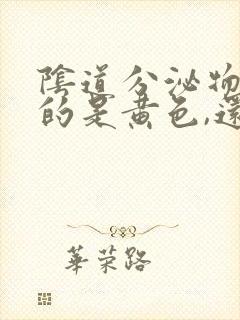 陰道分泌物
的是黄色,還
華荣路